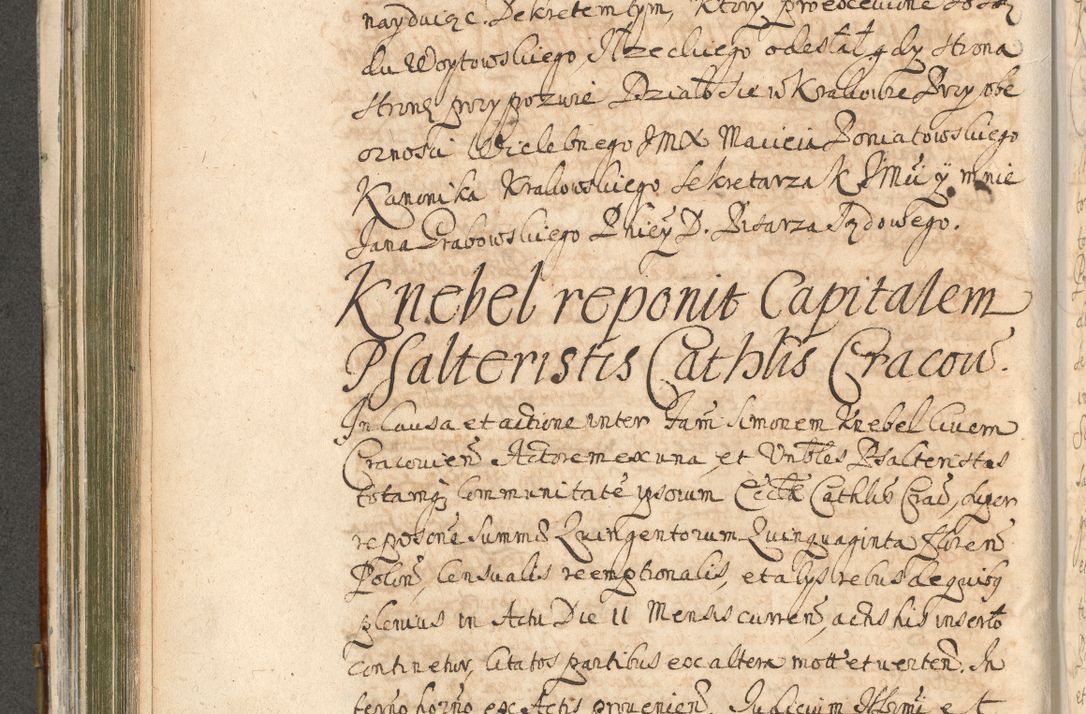 nayduiąc. Dekretem tym, Ktory prwescevione
du Woytowskiego, Rzeckiego odesłał gdy strona
Stronę przy pozwie Działo sie w Krakowie Przy obe
cnosci Wielebnego JMX Macieia Poniatowskiego
Kanonika Krakowskiego Sekretarza K JMci y mnie
Jana Grabowskiego Pniey D. Pisarza Sądowego.
Knebel reponit Capitalem
Psalteristis Cathlis Cracou.
In Causa et actione inter Fam Simonem Knebel Ciuem
Cracouien Actorem ex una, et Unbles Psalteristas
totamq; Communitate ipsorum Eccle Cathlis Crac, super
reposone Summæ Quingentorum Quinquaginta Floren
Polon, Censualis reemptionalis, et alys rebus de quibus
plenius in Actu Die 11 Mensis curren, actis his inserto
continetur, Citatos partibus ex altera mott et verten. In
termo horno ex Actis prouenien, Judicium Illsmi et